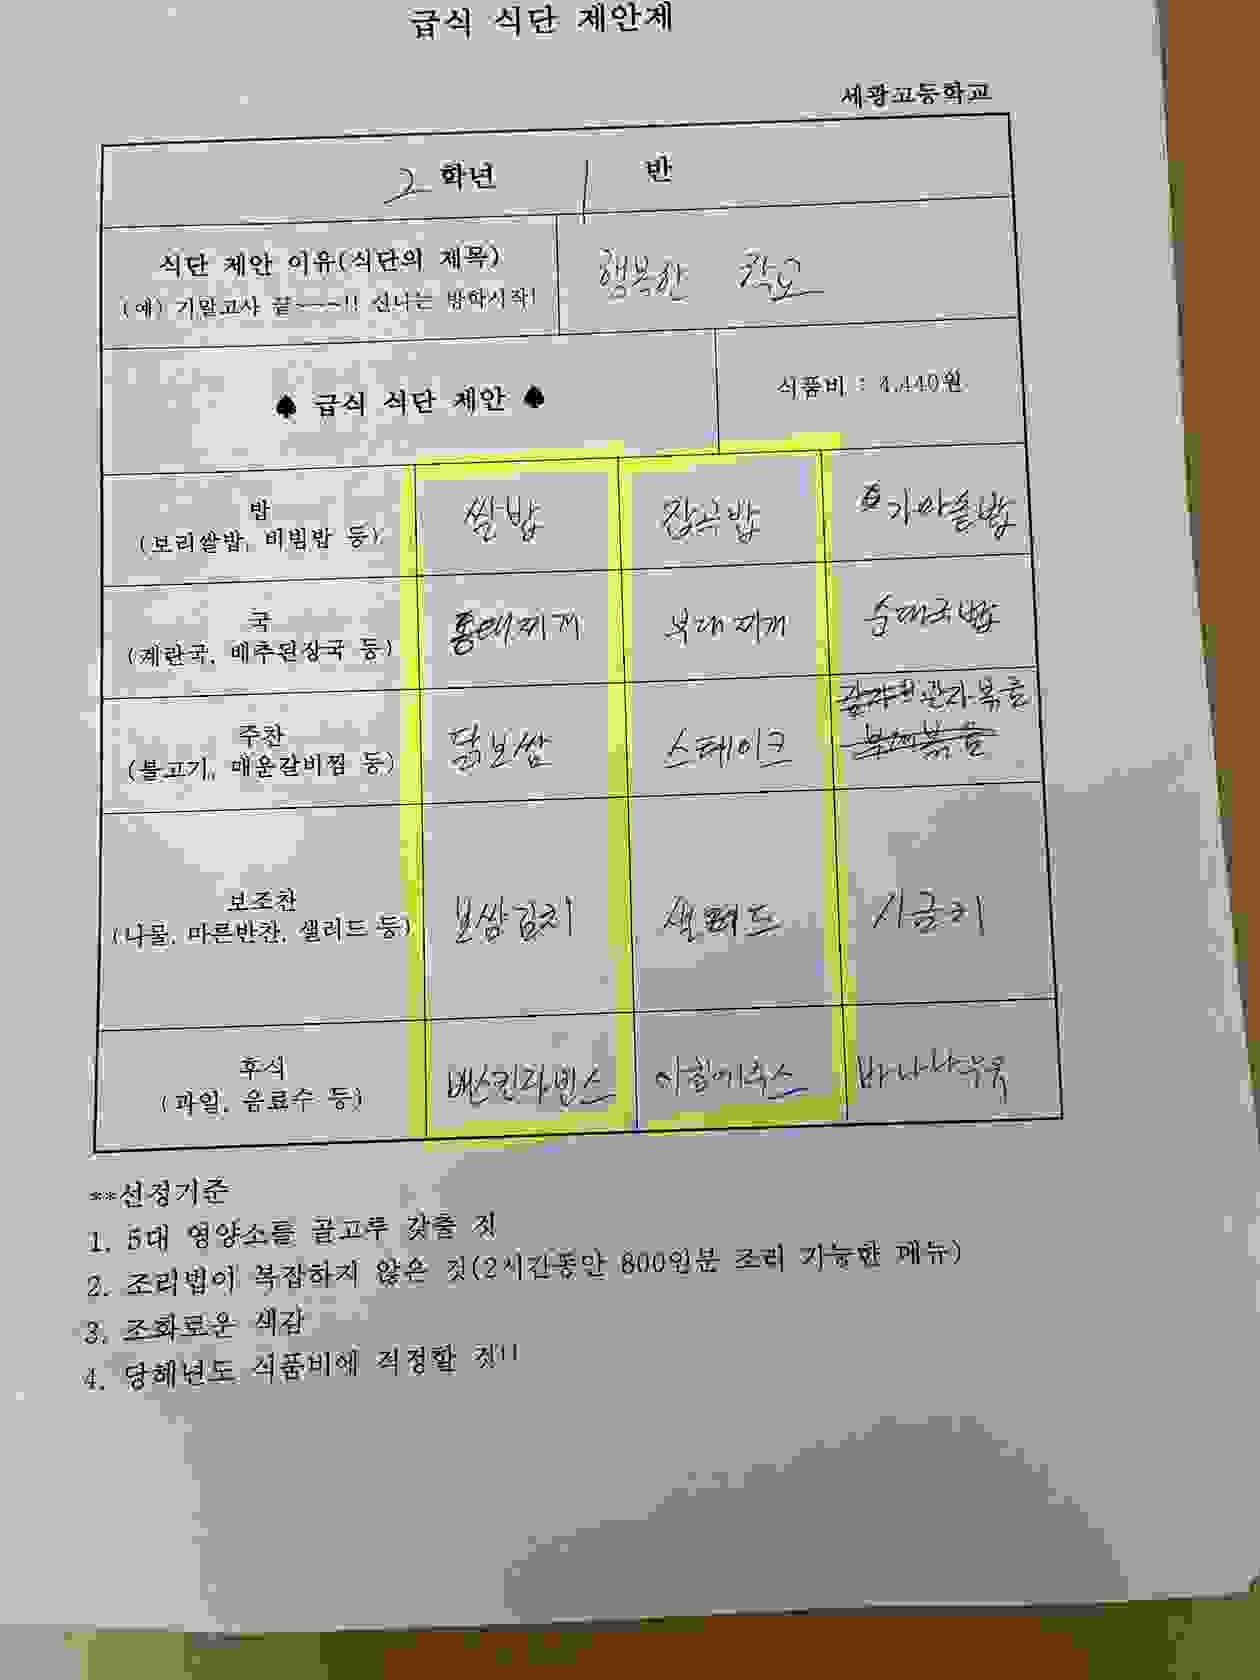 급식 식단 제안제
세광고등학교
2 학년 1 반
식단 제안 이유(식단의 제목)
(예) 기말고사 끝~~~!! 신나는 방학시작!
행복한 학교
♠ 급식 식단 제안 ♠
식품비 : 4,440원
밥
(보리쌀밥, 비빔밥 등)
쌀밥 잡곡밥 가마솥밥
국
(계란국, 배추된장국 등)
동태찌개 부대찌개 순대국밥
주찬
(불고기, 매운갈비찜 등)
닭보쌈 스테이크 관자볶음
보조찬
(나물, 마른반찬, 샐러드 등)
보쌈김치 샐러드
후식
(과일, 음료수 등)
베스킨라빈스 아침에주스 바나나우유
**선정기준
1. 5대 영양소를 골고루 갖출 것
2. 조리법이 복잡하지 않은 것(2시간동안 800인분 조리 가능한 메뉴)
3. 조화로운 색감
4. 당해년도 식품비에 적정할 것!!